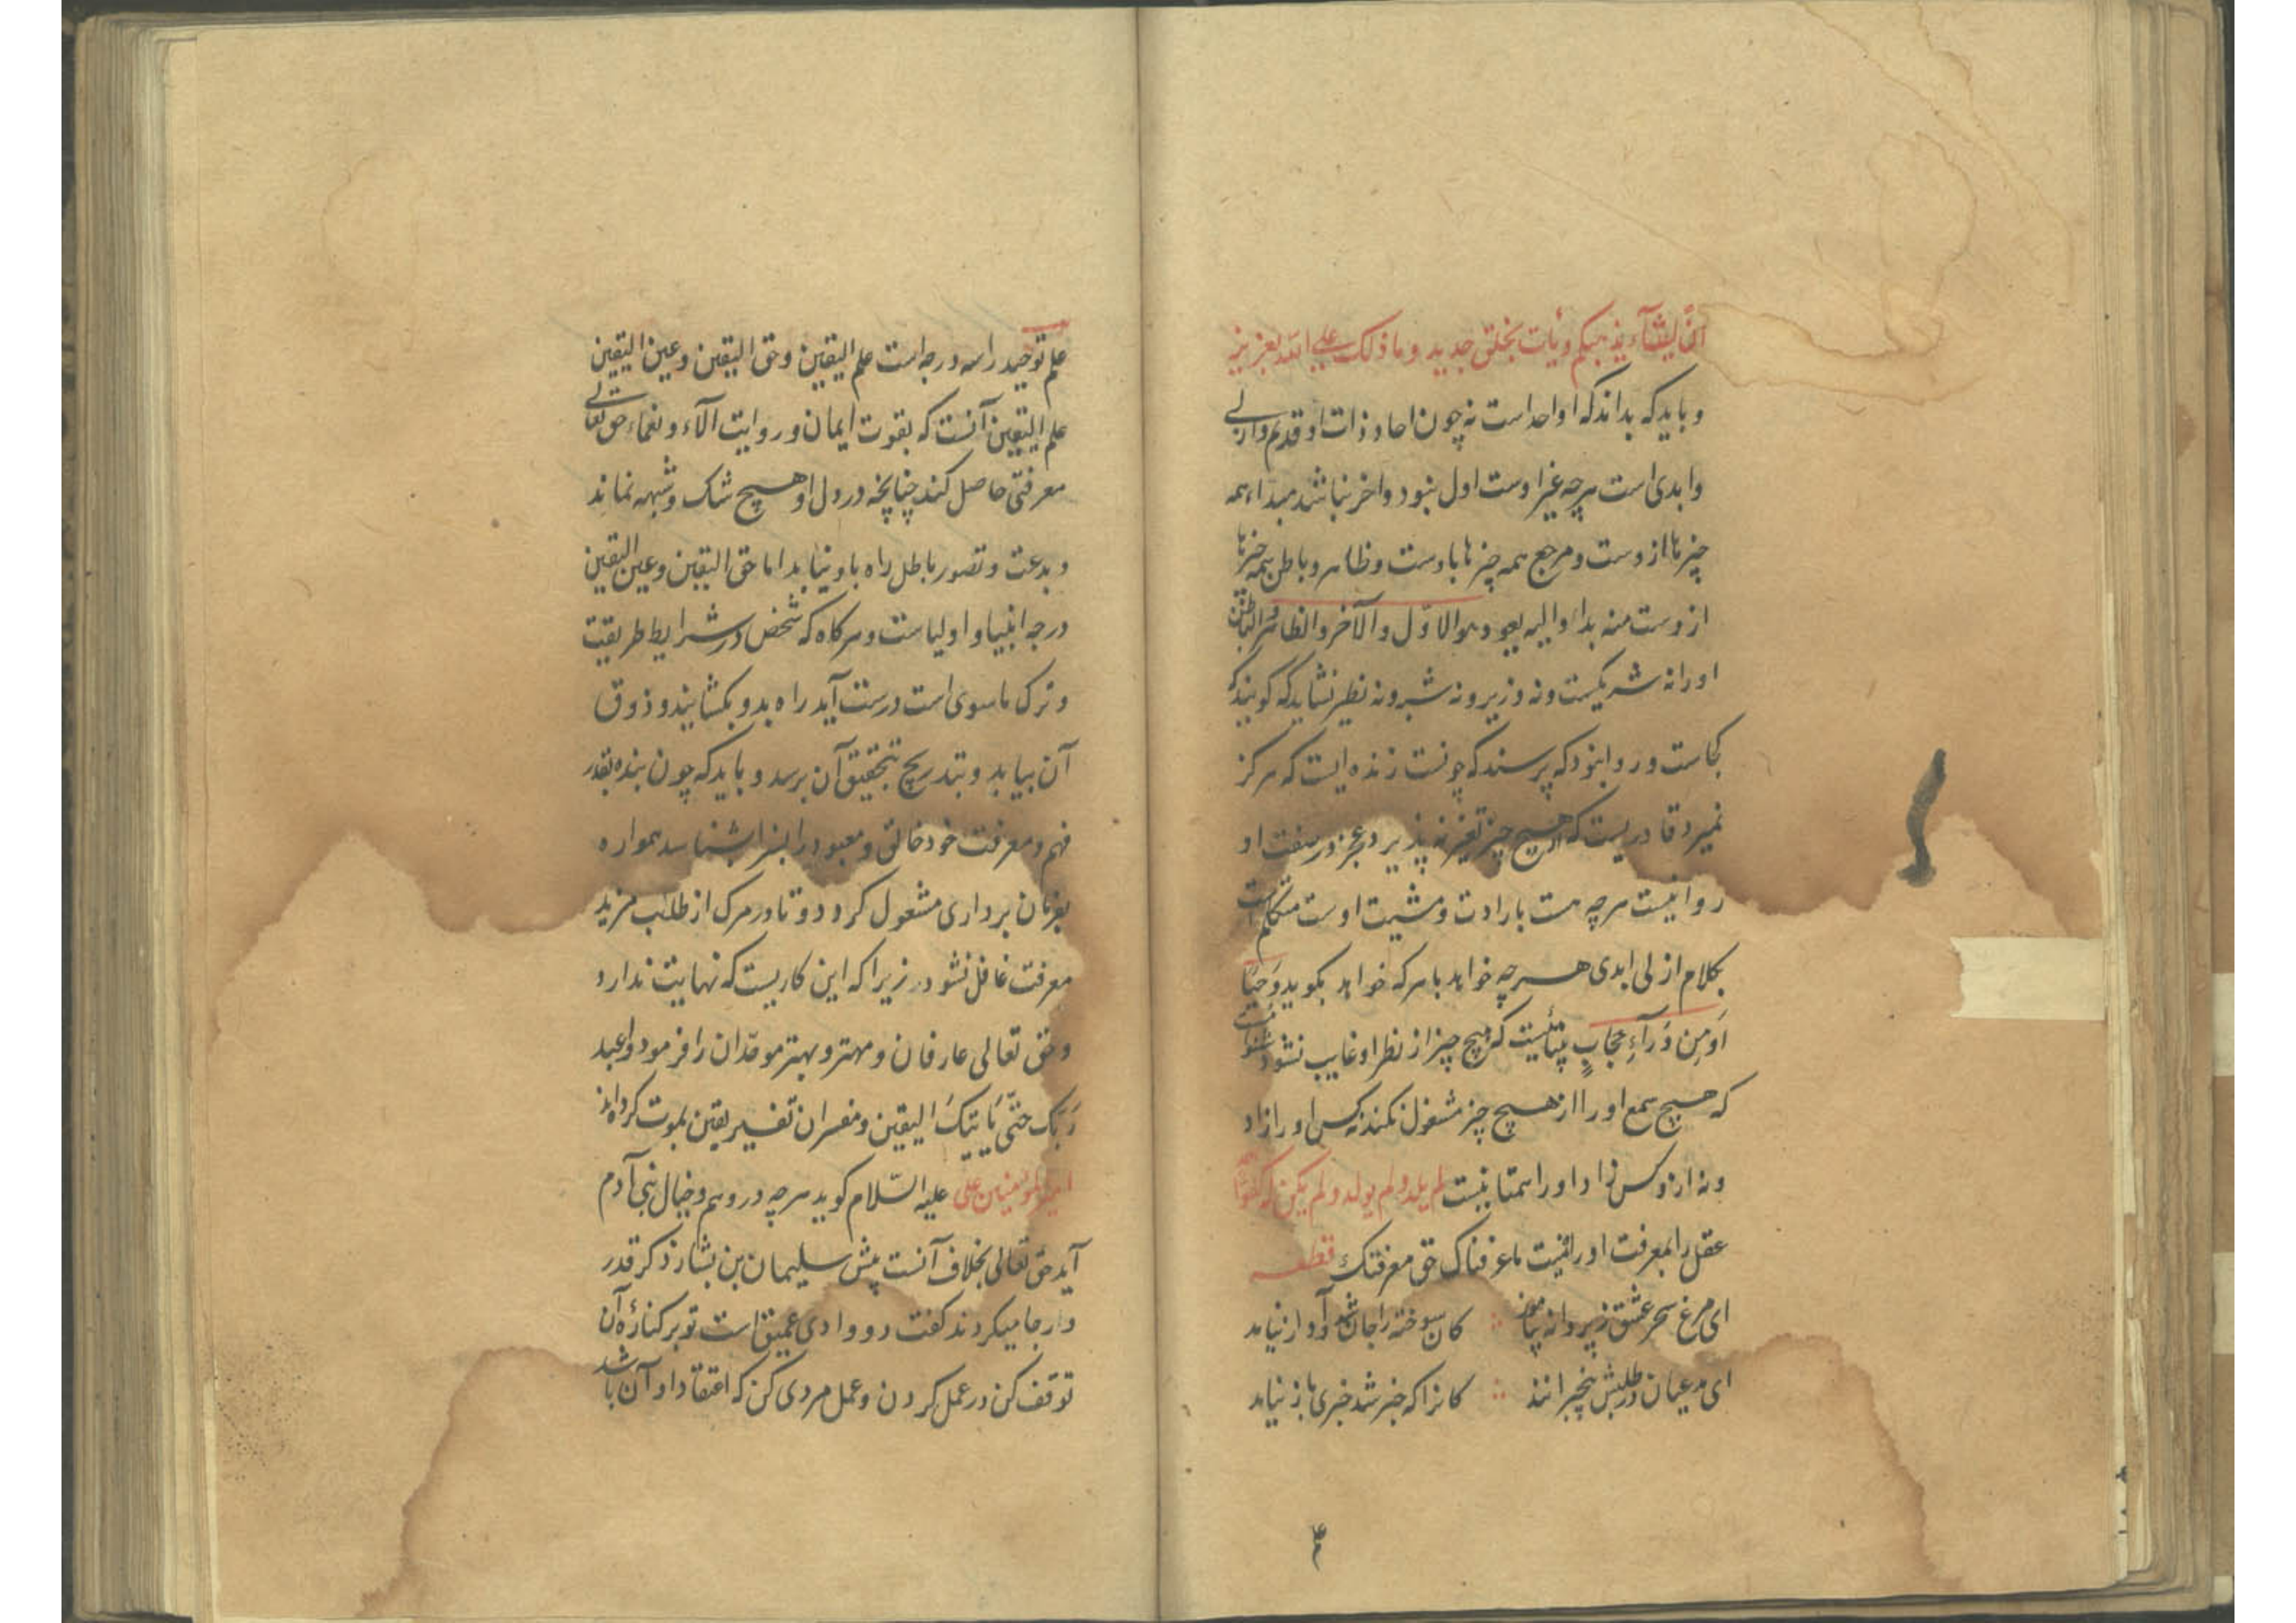 ان یشآء یذهبکم ویأت بخلق جدید وما ذلک علی الله بعزیز
و باید که بداند که او واحد است نه چون احاد و ذات او قدیم وازلی
وابدی است هرچه غیر اوست اول نبود واخر نباشد مبداء همه
چیزها ازوست ومرجع همه چیزها باوست وظاهر وباطن همه چیزها
ازوست منه بداء والیه یعود هو الاوّل والآخر والظاهر والباطن
اورا نه شریکست ونه وزیر ونه شبه ونه نظیر نشاید که گویند که
کجاست وروا نبود که پرسند که چونست زنده ایست که هرگز
نمیرد قادریست که هیچ چیز تغیر نه پذیرد وعجز در صفت او
روا نیست هرچه هست بارادت ومشیت اوست متکلم است
بکلام ازلی ابدی هرچه خواهد باهرکه خواهد بگوید وَحیًا
اَو مِن وَرآءِ حجابٍ بیناییست که هیچ چیز از نظر او غایب نشود شنواییست
که هیچ سمع اورا از هیچ چیز مشغول نکند نه کس اورا زاد
ونه ازو کس زاد اورا همتا نیست لم یلد ولم یولد ولم یکن له کفوًا
عقل را بمعرفت او راه نیست ما عرفناک حق معرفتک قطعـه
ای مرغ سحر عشق ز پروانه بیاموز ∴ کان سوخته را جان شد و آواز نیامد
ای مدعیان در طلبش بیخبرانند ∴ کانرا که خبر شد خبری باز نیامد
۴
علم توحید را سه درجه است علم الیقین وحق الیقین وعین الیقین
علم الیقین آنست که بقوت ایمان وروایت آلآء ونعماء حق تعالی
معرفتی حاصل کند چنانچه در دل او هیچ شک وشبهه نماند
وبدعت وتصور باطل راه باو نیابد اما حق الیقین وعین الیقین
درجه انبیا و اولیاست وهرکاه که شخص در شرایط طریقت
وترک ماسوی است درست آید راه بدو بکشایند وذوق
آن بیابد وبتدریج بتحقیق آن برسد وباید که چون بنده بقدر
فهم ومعرفت خود خالق ومعبود را بسزا بشناسد همواره
بفرمان برداری مشغول گردد وتا در مرک از طلب مزید
معرفت غافل نشود زیرا که این کاریست که نهایت ندارد
وحق تعالی عارفان ومهتر وبهتر موحّدان را فرمود واعبد
رَبّکَ حتّی یَاتیکَ الیقین ومفسران تفسیر یقین بموت کرده اند
امیر المؤمنین علی علیه السّلام کوید هرچه در وهم وخیال بنی آدم
آید حق تعالی بخلاف آنست پیش سلیمان بن بشار ذکر قدر
وارجا میکردند کفت دو وادی عمیق است تو بر کنارهٔ آن
توقف کن در عمل کردن وعمل مردی کن که اعتقاد او آن باشد